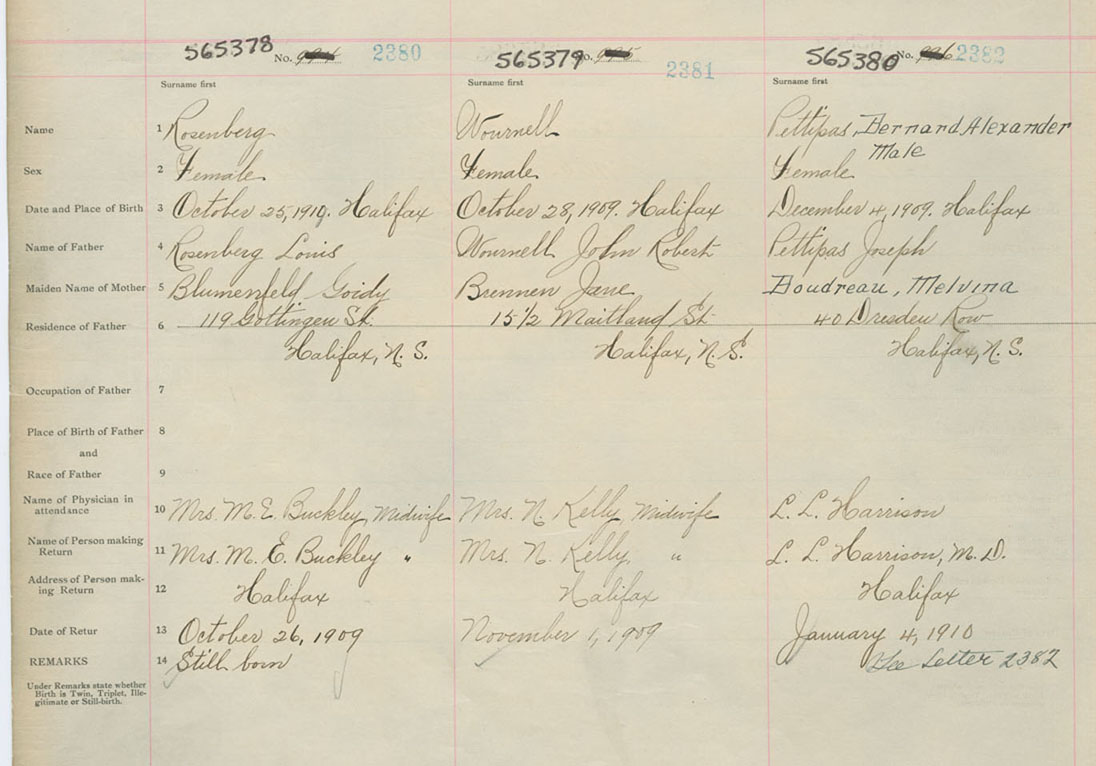 565378 No. 994 2380
565379 No. 995 2381
565380 No. 996 2382
Surname first Surname first Surname first
Name 1 Rosenberg Wournell Pettipas, Bernard Alexander
Male
Sex 2 Female Female Female
Date and Place of Birth 3 October 25, 1910. Halifax October 28, 1909. Halifax December 4, 1909. Halifax
Name of Father 4 Rosenberg Louis Wournell John Robert Pettipas Joseph
Maiden Name of Mother 5 Blumenfeld Goidy Brennen Jane Boudreau, Melvina
Residence of Father 6 119 Gottingen St. 15 1/2 Maitland St. 40 Dresden Row
Halifax, N. S. Halifax, N. S. Halifax, N. S.
Occupation of Father 7
Place of Birth of Father 8
and
Race of Father 9
Name of Physician in
attendance 10 Mrs. M. E. Buckley Midwife Mrs. N. Kelly Midwife L. L. Harrison
Name of Person making
Return 11 Mrs. M. E. Buckley " Mrs. N. Kelly " L. L. Harrison, M. D.
Address of Person mak-
ing Return 12 Halifax Halifax Halifax
Date of Retur 13 October 26, 1909 November 1, 1909 January 4, 1910
REMARKS 14 Still born See Letter 2382
Under Remarks state whether
Birth is Twin, Triplet, Ille-
gitimate or Still-birth.